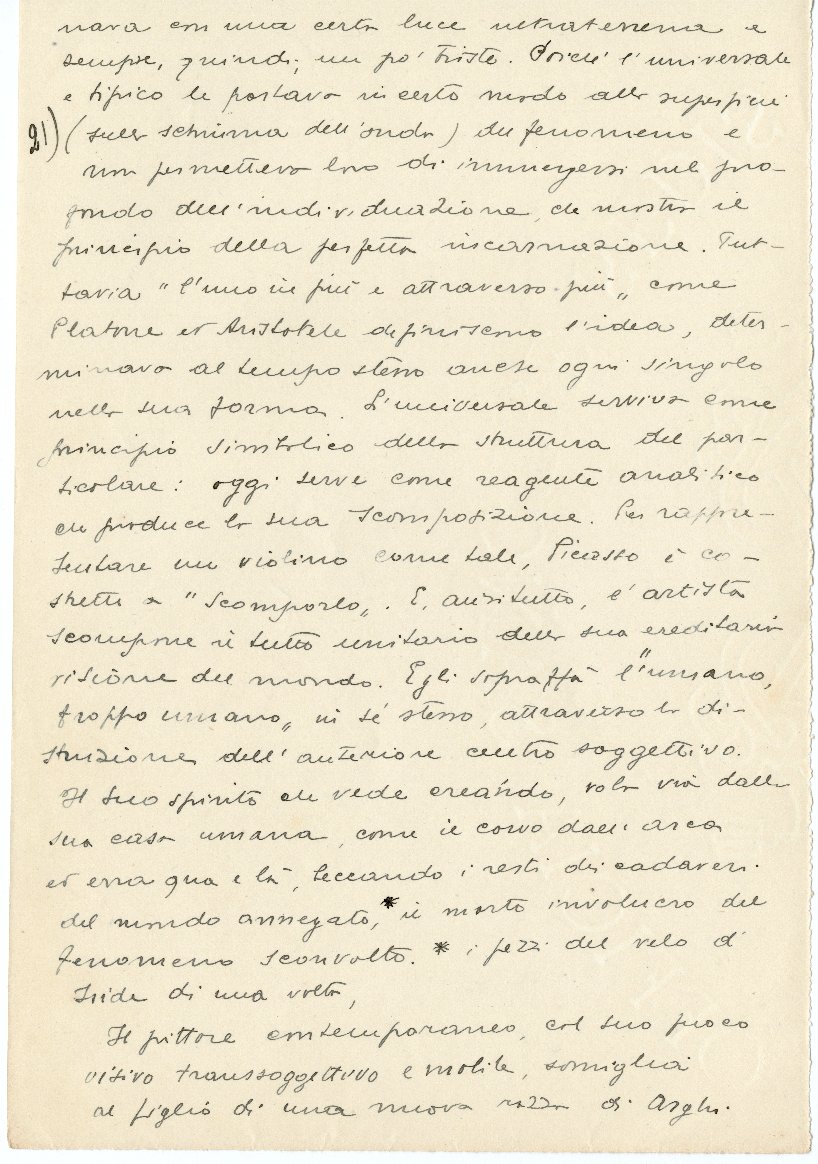 nava con una certa luce ultraterrena e
sempre, quindi, un po' triste. Poiché l'universale
e tipico le portava in certo modo alla superficie
21) (sulla schiuma dell'onda) del fenomeno e
non permetteva loro di immergersi nel pro-
fondo dell'individuazione, che mostra il
principio della perfetta incarnazione. Tut-
tavia "l'uno in più e attraverso più„ come
Platone ed Aristotele definiscono l'idea, deter-
minava al tempo stesso anche ogni singolo
nella sua forma. L'universale serviva come
principio simbolico della struttura del par-
ticolare: oggi serve come reagente analitico
che produce la sua scomposizione. Per rappre-
sentare un violino come tale, Picasso è co-
stretto a "scomporlo„. E, anzitutto, l'artista
scompone il tutto unitario della sua ereditaria
visione del mondo. Egli sopraffà l'"umano,
troppo umano„ in sé stesso, attraverso la di-
struzione dell'anteriore centro soggettivo.
Il suo spirito che vede creando, vola via dalla
sua casa umana, come il corvo dall'arca
ed erra qua e là, beccando i resti dei cadaveri
del mondo annegato,* il morto involucro del
fenomeno sconvolto. * i pezzi del velo d'
Iside di una volta,
Il pittore contemporaneo, col suo fuoco
visivo transsoggettivo e mobile, somiglia
al figlio di una nuova razza di Arghi.